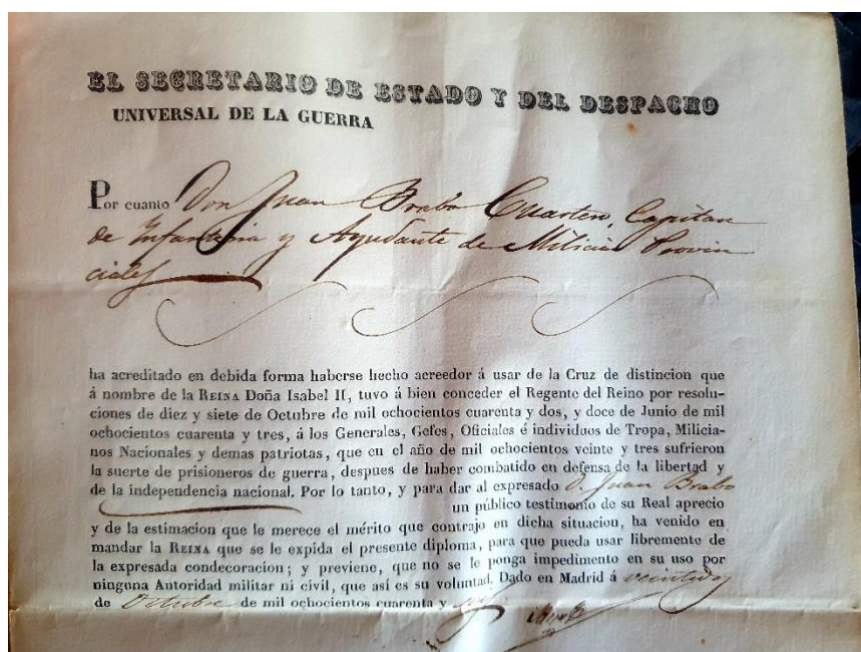 EL SECRETARIO DE ESTADO Y DEL DESPACHO
UNIVERSAL DE LA GUERRA
Por cuanto Don Juan Brabo Cuartero, Capitan
de Infanteria y Ayudante de Milicias Provin
ciales
ha acreditado en debida forma haberse hecho acreedor á usar de la Cruz de distincion que
á nombre de la REINA Doña Isabel II, tuvo á bien conceder el Regente del Reino por resolu-
ciones de diez y siete de Octubre de mil ochocientos cuarenta y dos, y doce de Junio de mil
ochocientos cuarenta y tres, á los Generales, Gefes, Oficiales é individuos de Tropa, Milicia-
nos Nacionales y demas patriotas, que en el año de mil ochocientos veinte y tres sufrieron
la suerte de prisioneros de guerra, despues de haber combatido en defensa de la libertad y
de la independencia nacional. Por lo tanto, y para dar al expresado D. Juan Brabo
un público testimonio de su Real aprecio
y de la estimacion que le merece el mérito que contrajo en dicha situacion, ha venido en
mandar la REINA que se le expida el presente diploma, para que pueda usar libremente de
la expresada condecoracion; y previene, que no se le ponga impedimento en su uso por
ninguna Autoridad militar ni civil, que así es su voluntad. Dado en Madrid á veintidos
de Octubre de mil ochocientos cuarenta y seis